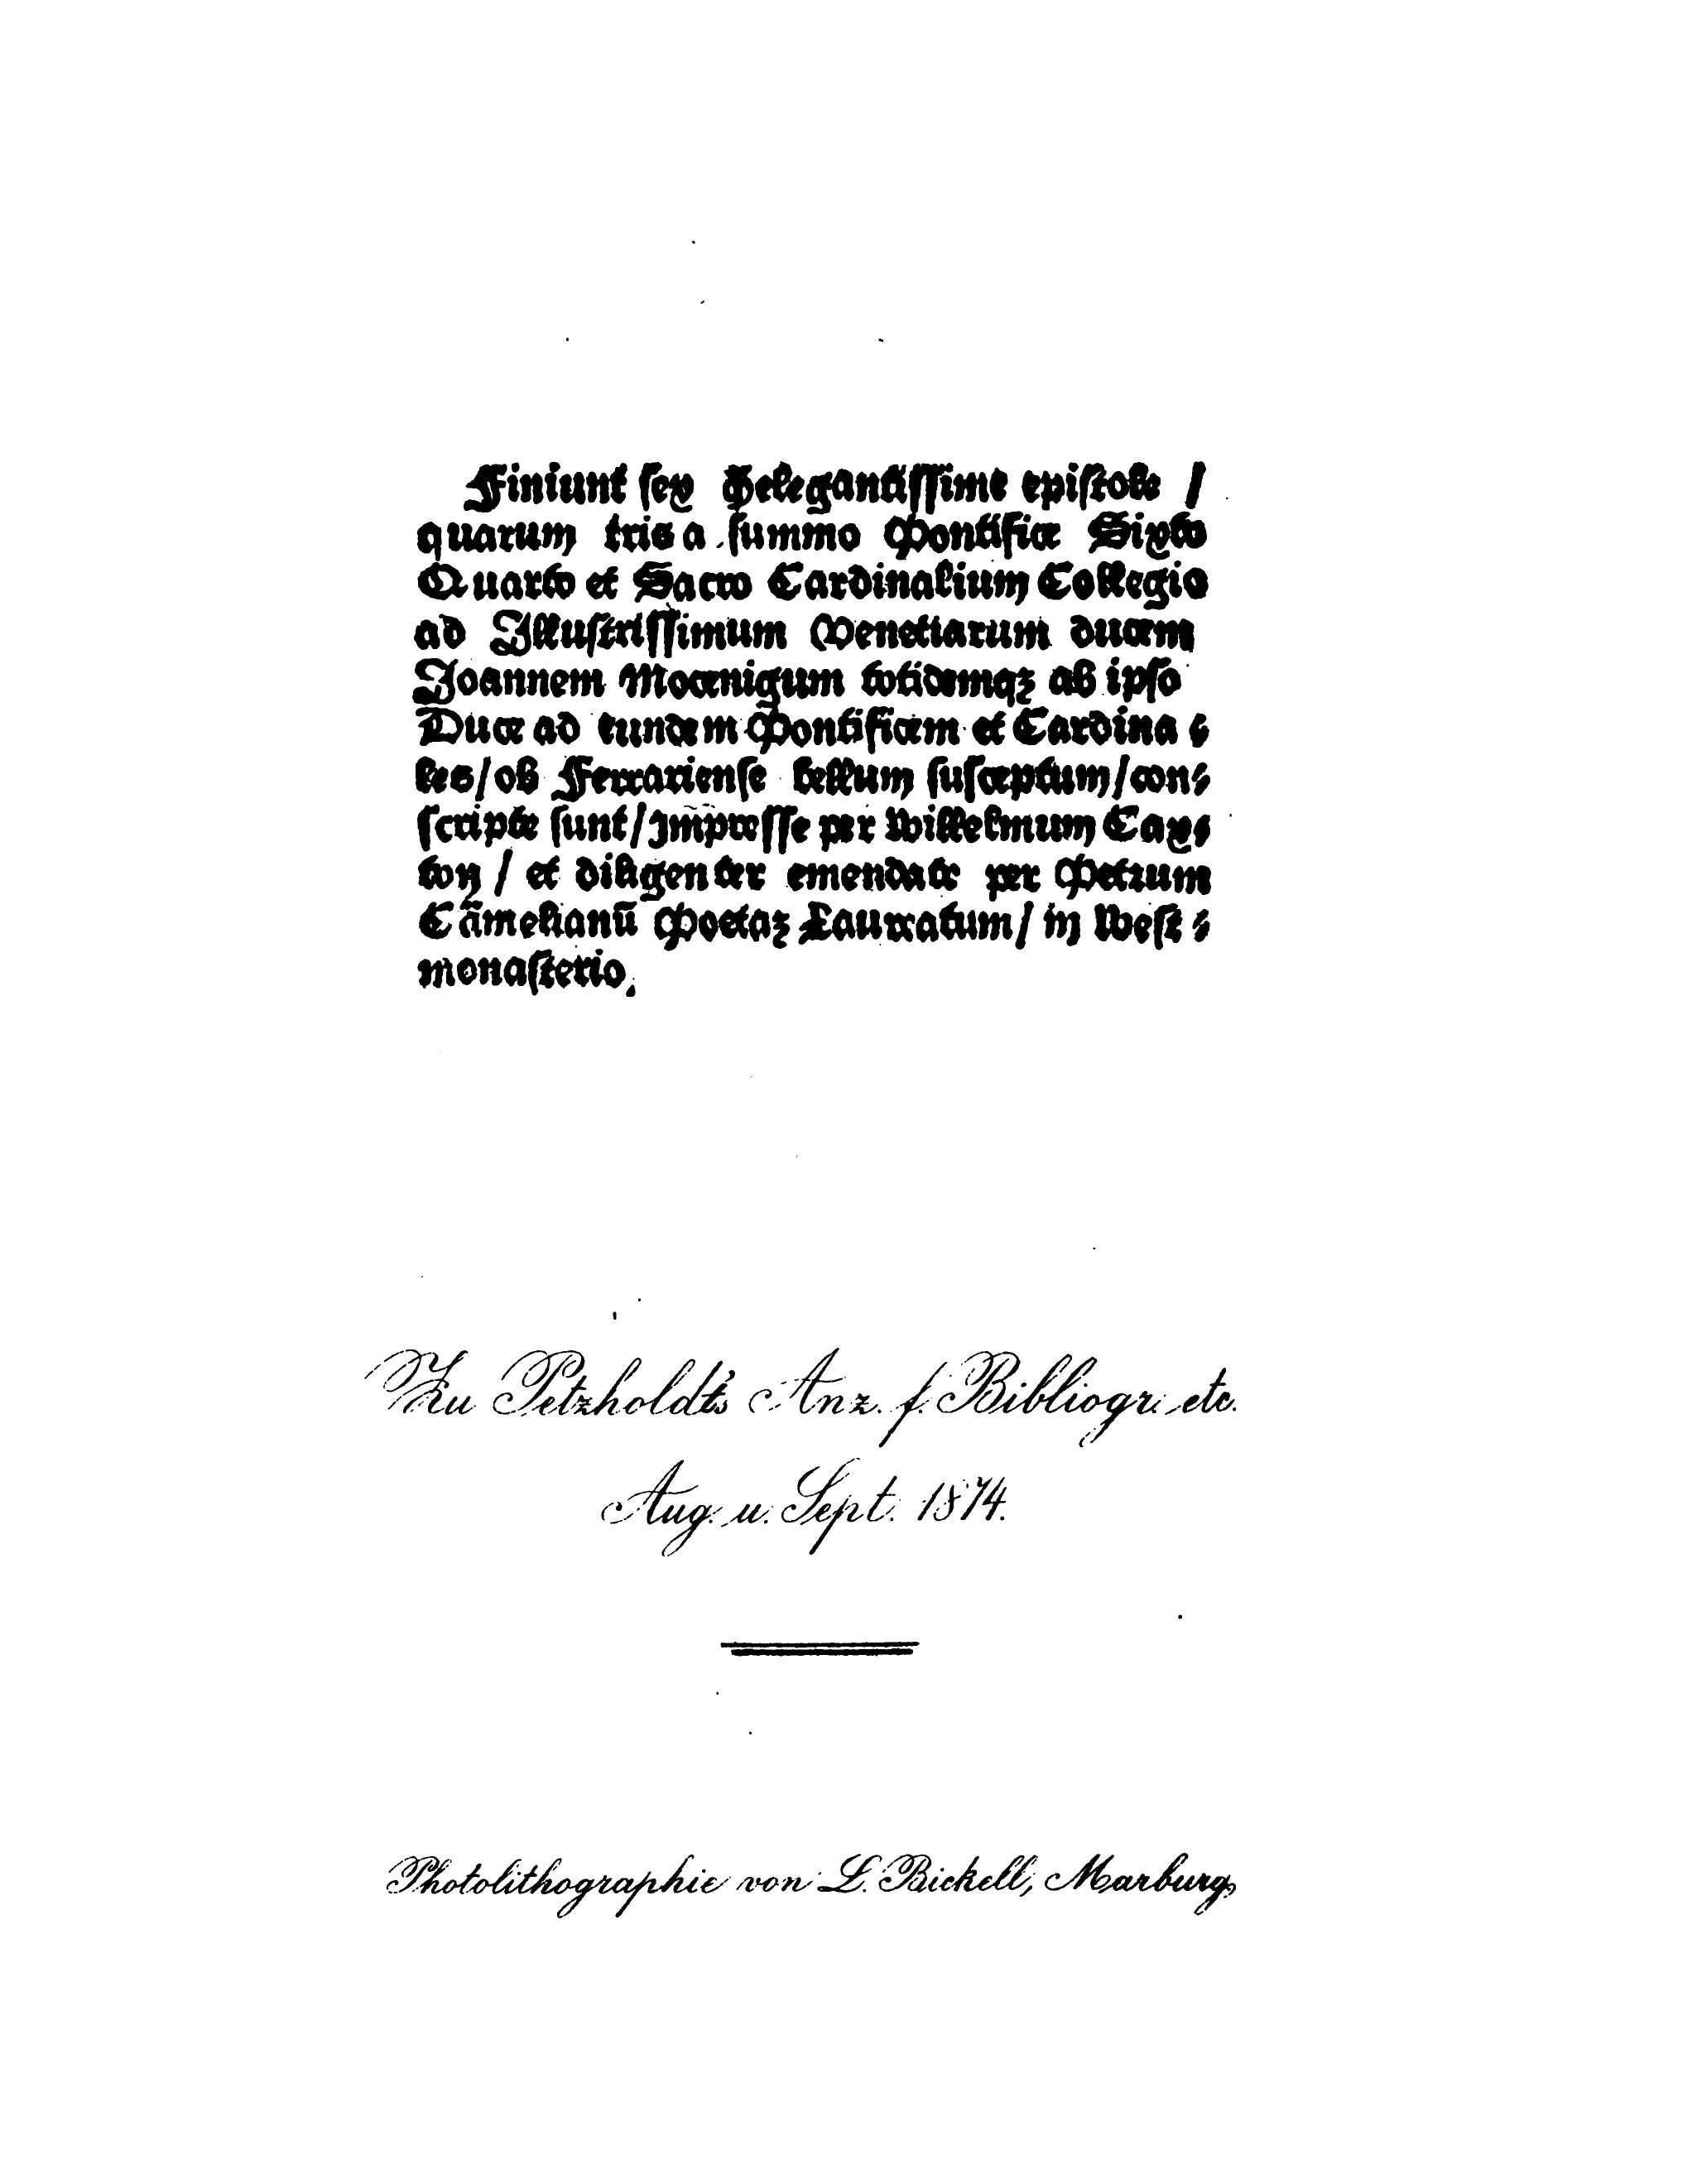 Finiunt sex Pelegantissime epistole /
quarum tris a summo Pontifice Sixto
Quarto et Sacro Cardinalium Collegio
ad Illustrissimum Venetiarum ducem
Joannem Mocenigum totidemqꝫ ab ipso
Duce ad eundem Pontificem et Cardina⸗
les/ ob Ferrariense bellum susceptum/ con⸗
scripte sunt/ Impresse per Willelmum Cax⸗
ton / et diligenter emendate per Petrum
Cãmelianũ Poetaꝫ Laureatum/ in West⸗
monasterio.
Zu Petzholdt's Anz. f. Bibliogr. etc.
Aug. u. Sept. 1874.
Photolithographie von L. Bickell, Marburg